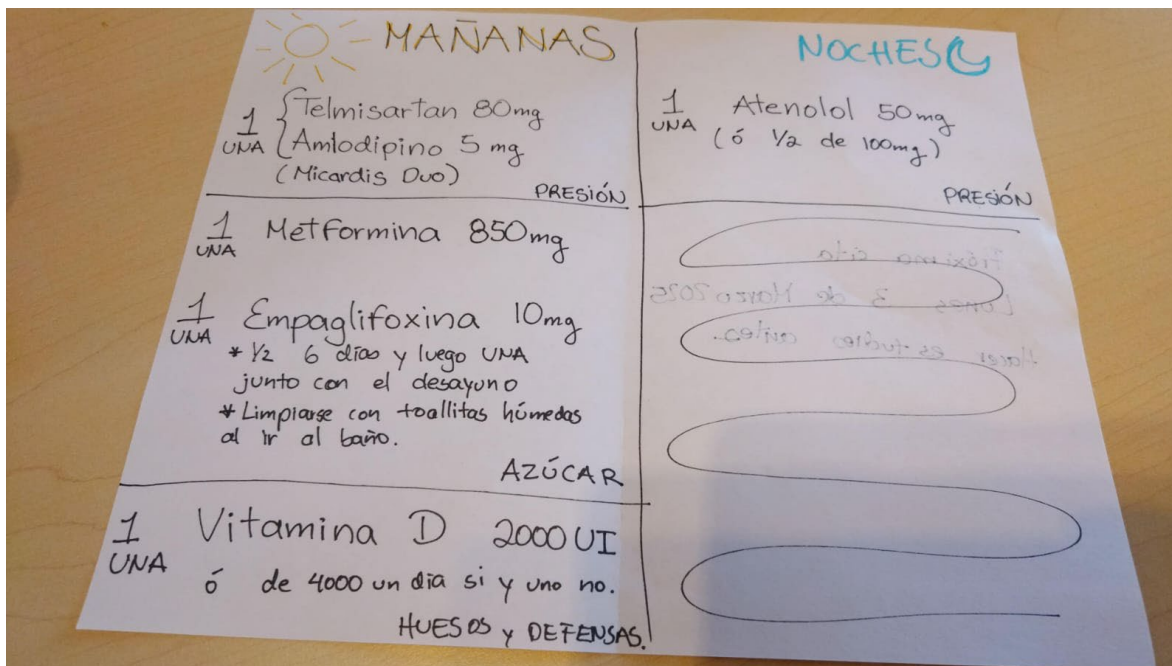 MAÑANAS
1 UNA
Telmisartan 80mg
Amlodipino 5 mg
(Micardis Duo)
PRESIÓN
1 UNA
Metformina 850mg
1 UNA
Empaglifoxina 10mg
* 1/2 6 días y luego UNA
junto con el desayuno
* Limpiarse con toallitas húmedas
al ir al baño.
AZÚCAR
1 UNA
Vitamina D 2000 UI
ó de 4000 un día si y uno no.
HUESOS y DEFENSAS.
NOCHES
1 UNA
Atenolol 50mg
(ó 1/2 de 100mg)
PRESIÓN
Próxima cita
Lunes 3 de Marzo 2025
Hacer estudios antes.